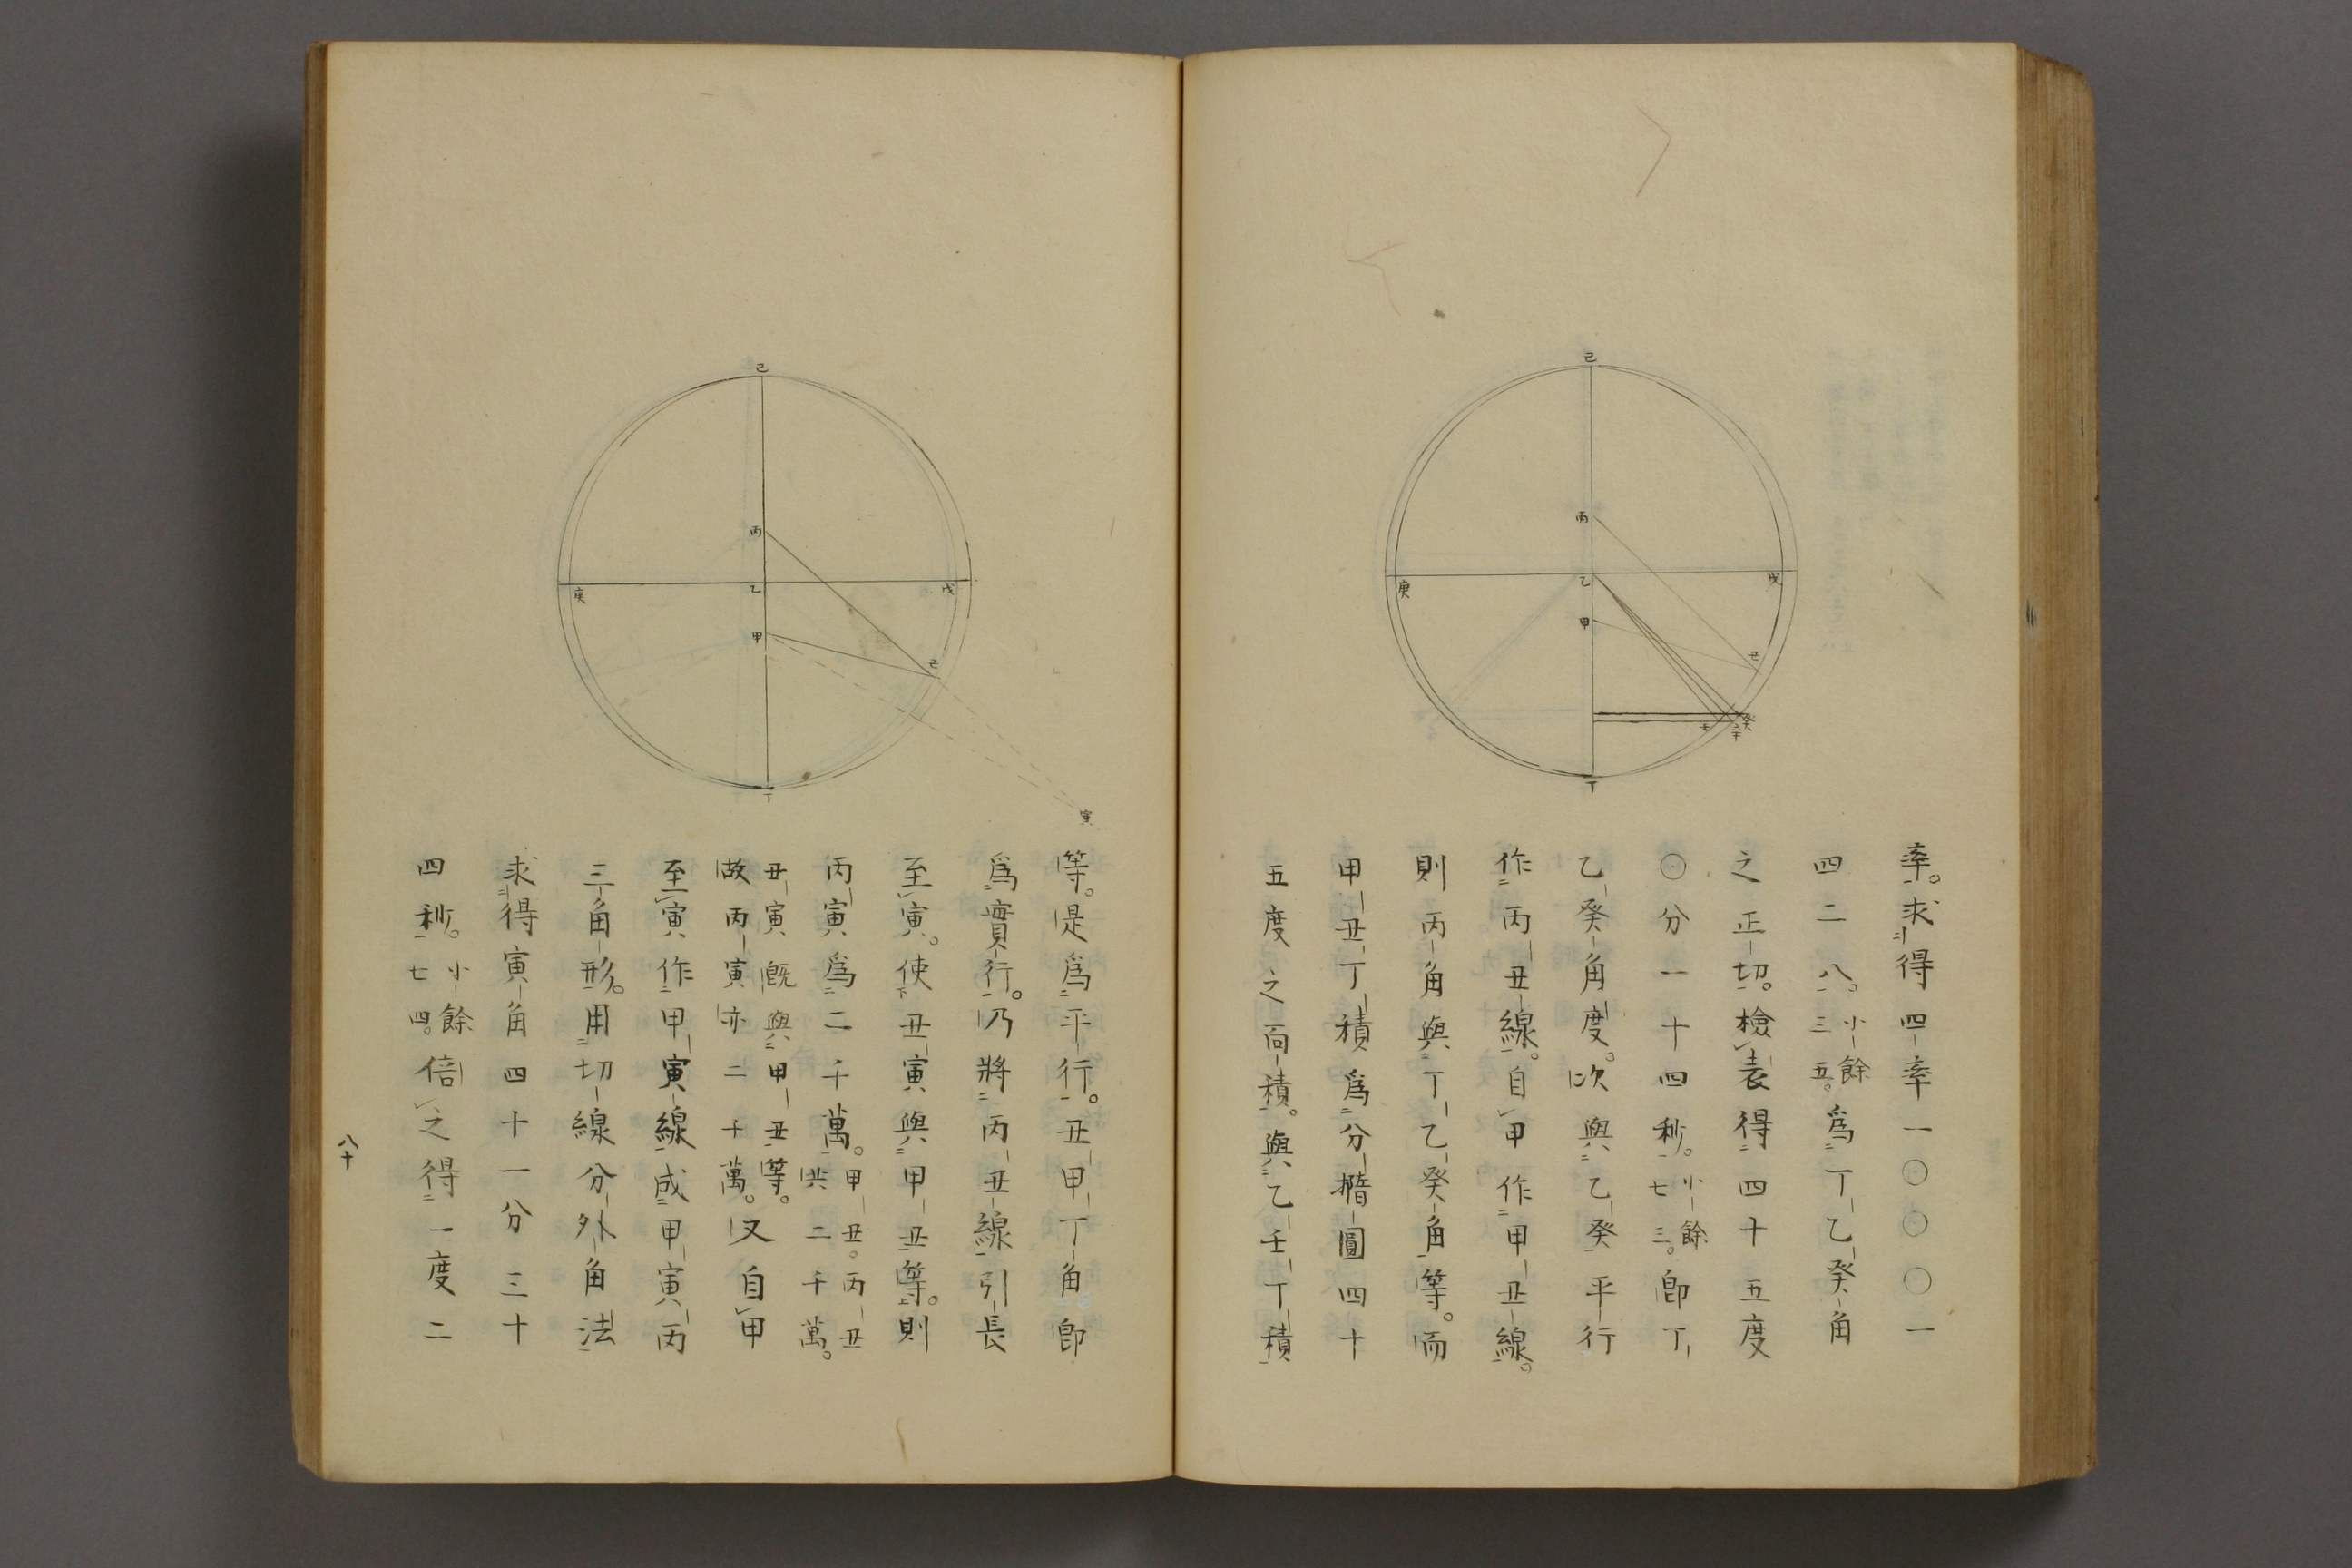 己
丙
乙
戊
庚
甲
丑
壬
癸
辛
丁
率。求得四率一〇〇〇一
四二八。小餘三五。爲丁乙癸角
之正切。檢表得四十五度
〇分一十四秒。小餘七三。卽丁
乙癸角度。次與乙癸平行
作丙丑線。自甲作甲丑線。
則丙角與丁乙癸角等。而
甲丑丁積爲分橢圓四十
五度之面積。與乙壬丁積
己
丙
乙
戊
庚
甲
丑
丁
寅
等。是爲平行。丑甲丁角卽
爲實行。乃將丙丑線引長
至寅。使丑寅與甲丑等。則
丙寅爲二千萬。甲丑。丙丑共二千萬。
丑寅旣與甲丑等。故丙寅亦二千萬。又自甲
至寅作甲寅線成甲寅丙
三角形。用切線分外角法
求得寅角四十一分三十
四秒。小餘七四。倍之得一度二
八十